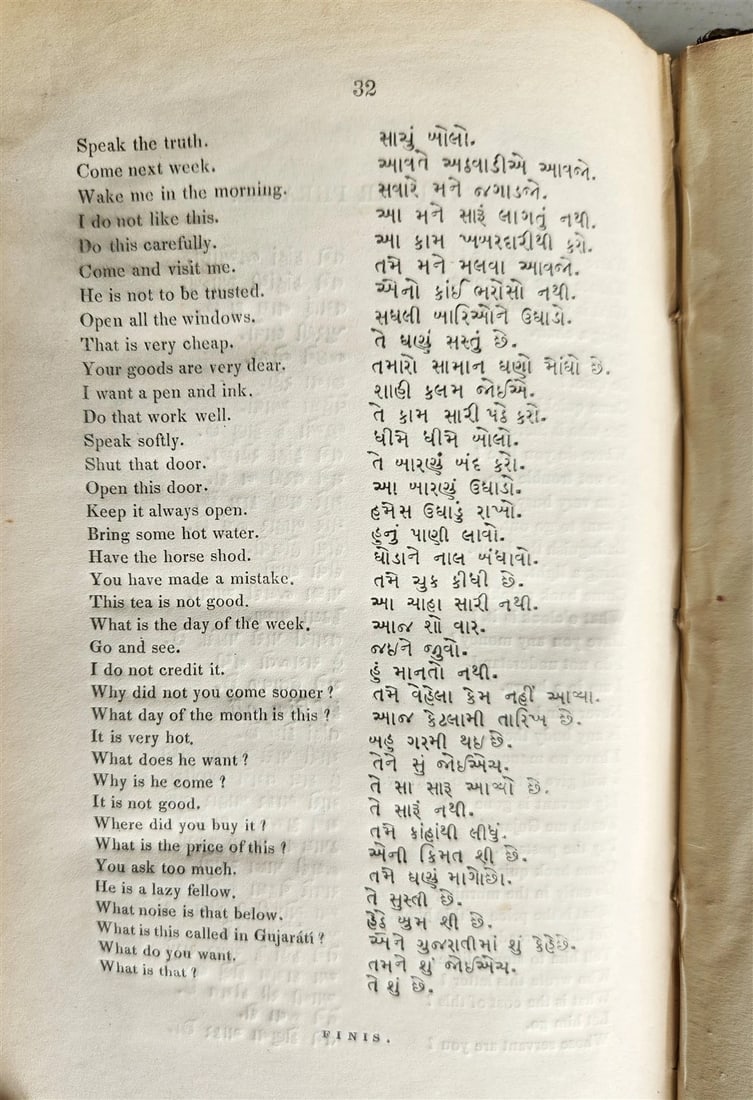 32
Speak the truth. સાચું બોલો.
Come next week. આવતે અઠવાડીએ આવજો.
Wake me in the morning. સવારે મને જગાડજો.
I do not like this. આ મને સારૂં લાગતું નથી.
Do this carefully. આ કામ ખબરદારીથી કરો.
Come and visit me. તમે મને મલવા આવજો.
He is not to be trusted. એનો કાંઈ ભરોસો નથી.
Open all the windows. સઘલી બારિઓને ઉઘાડો.
That is very cheap. તે ઘણું સસ્તું છે.
Your goods are very dear. તમારો સામાન ઘણો મોંઘો છે.
I want a pen and ink. શાહી કલમ જોઈએ.
Do that work well. તે કામ સારી પઠે કરો.
Speak softly. ધીમે ધીમે બોલો.
Shut that door. તે બારણું બંદ કરો.
Open this door. આ બારણું ઉઘાડો.
Keep it always open. હમેસ ઉઘાડું રાખો.
Bring some hot water. હુનું પાણી લાવો.
Have the horse shod. ઘોડાને નાલ બંધાવો.
You have made a mistake. તમે ચુક કીધી છે.
This tea is not good. આ ચાહા સારી નથી.
What is the day of the week. આજ શો વાર.
Go and see. જઇને જીુવો.
I do not credit it. હું માનતો નથી.
Why did not you come sooner ? તમે વેહેલા કેમ નહીં આવ્યા.
What day of the month is this ? આજ કેટલામી તારિખ છે.
It is very hot. બહુ ગરમી થઇ છે.
What does he want ? તેને સું જોઈએચ.
Why is he come ? તે સા સારૂ આવ્યો છે.
It is not good. તે સારૂં નથી.
Where did you buy it ? તમે કાંહાંથી લીધું.
What is the price of this ? એની કિમત શી છે.
You ask too much. તમે ઘણું માગોછો.
He is a lazy fellow. તે સુસ્તી છે.
What noise is that below. હેઠે બુમ શી છે.
What is this called in Gujarátí ? એને ગુજરાતીમાં શું કેહેછે.
What do you want. તમને શું જોઈએચ.
What is that ? તે શું છે.
FINIS.